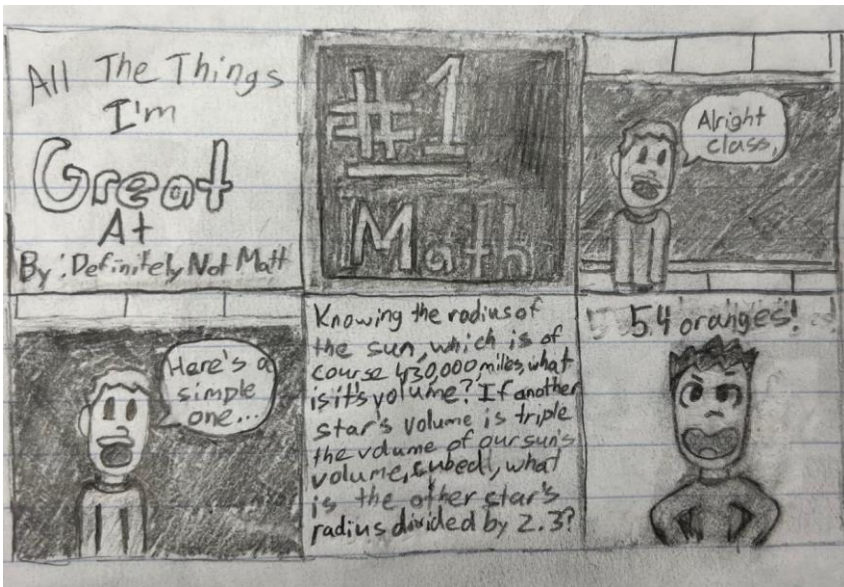 All The Things
I'm
Great
At
By: Definitely Not Matt
#1
Math
Alright
class,
Here's a
simple
one...
Knowing the radius of
the sun, which is of
course 430,000 miles, what
is it's volume? If another
star's volume is triple
the volume of our sun's
volume, cubed, what
is the other star's
radius divided by 2.3?
54 oranges!